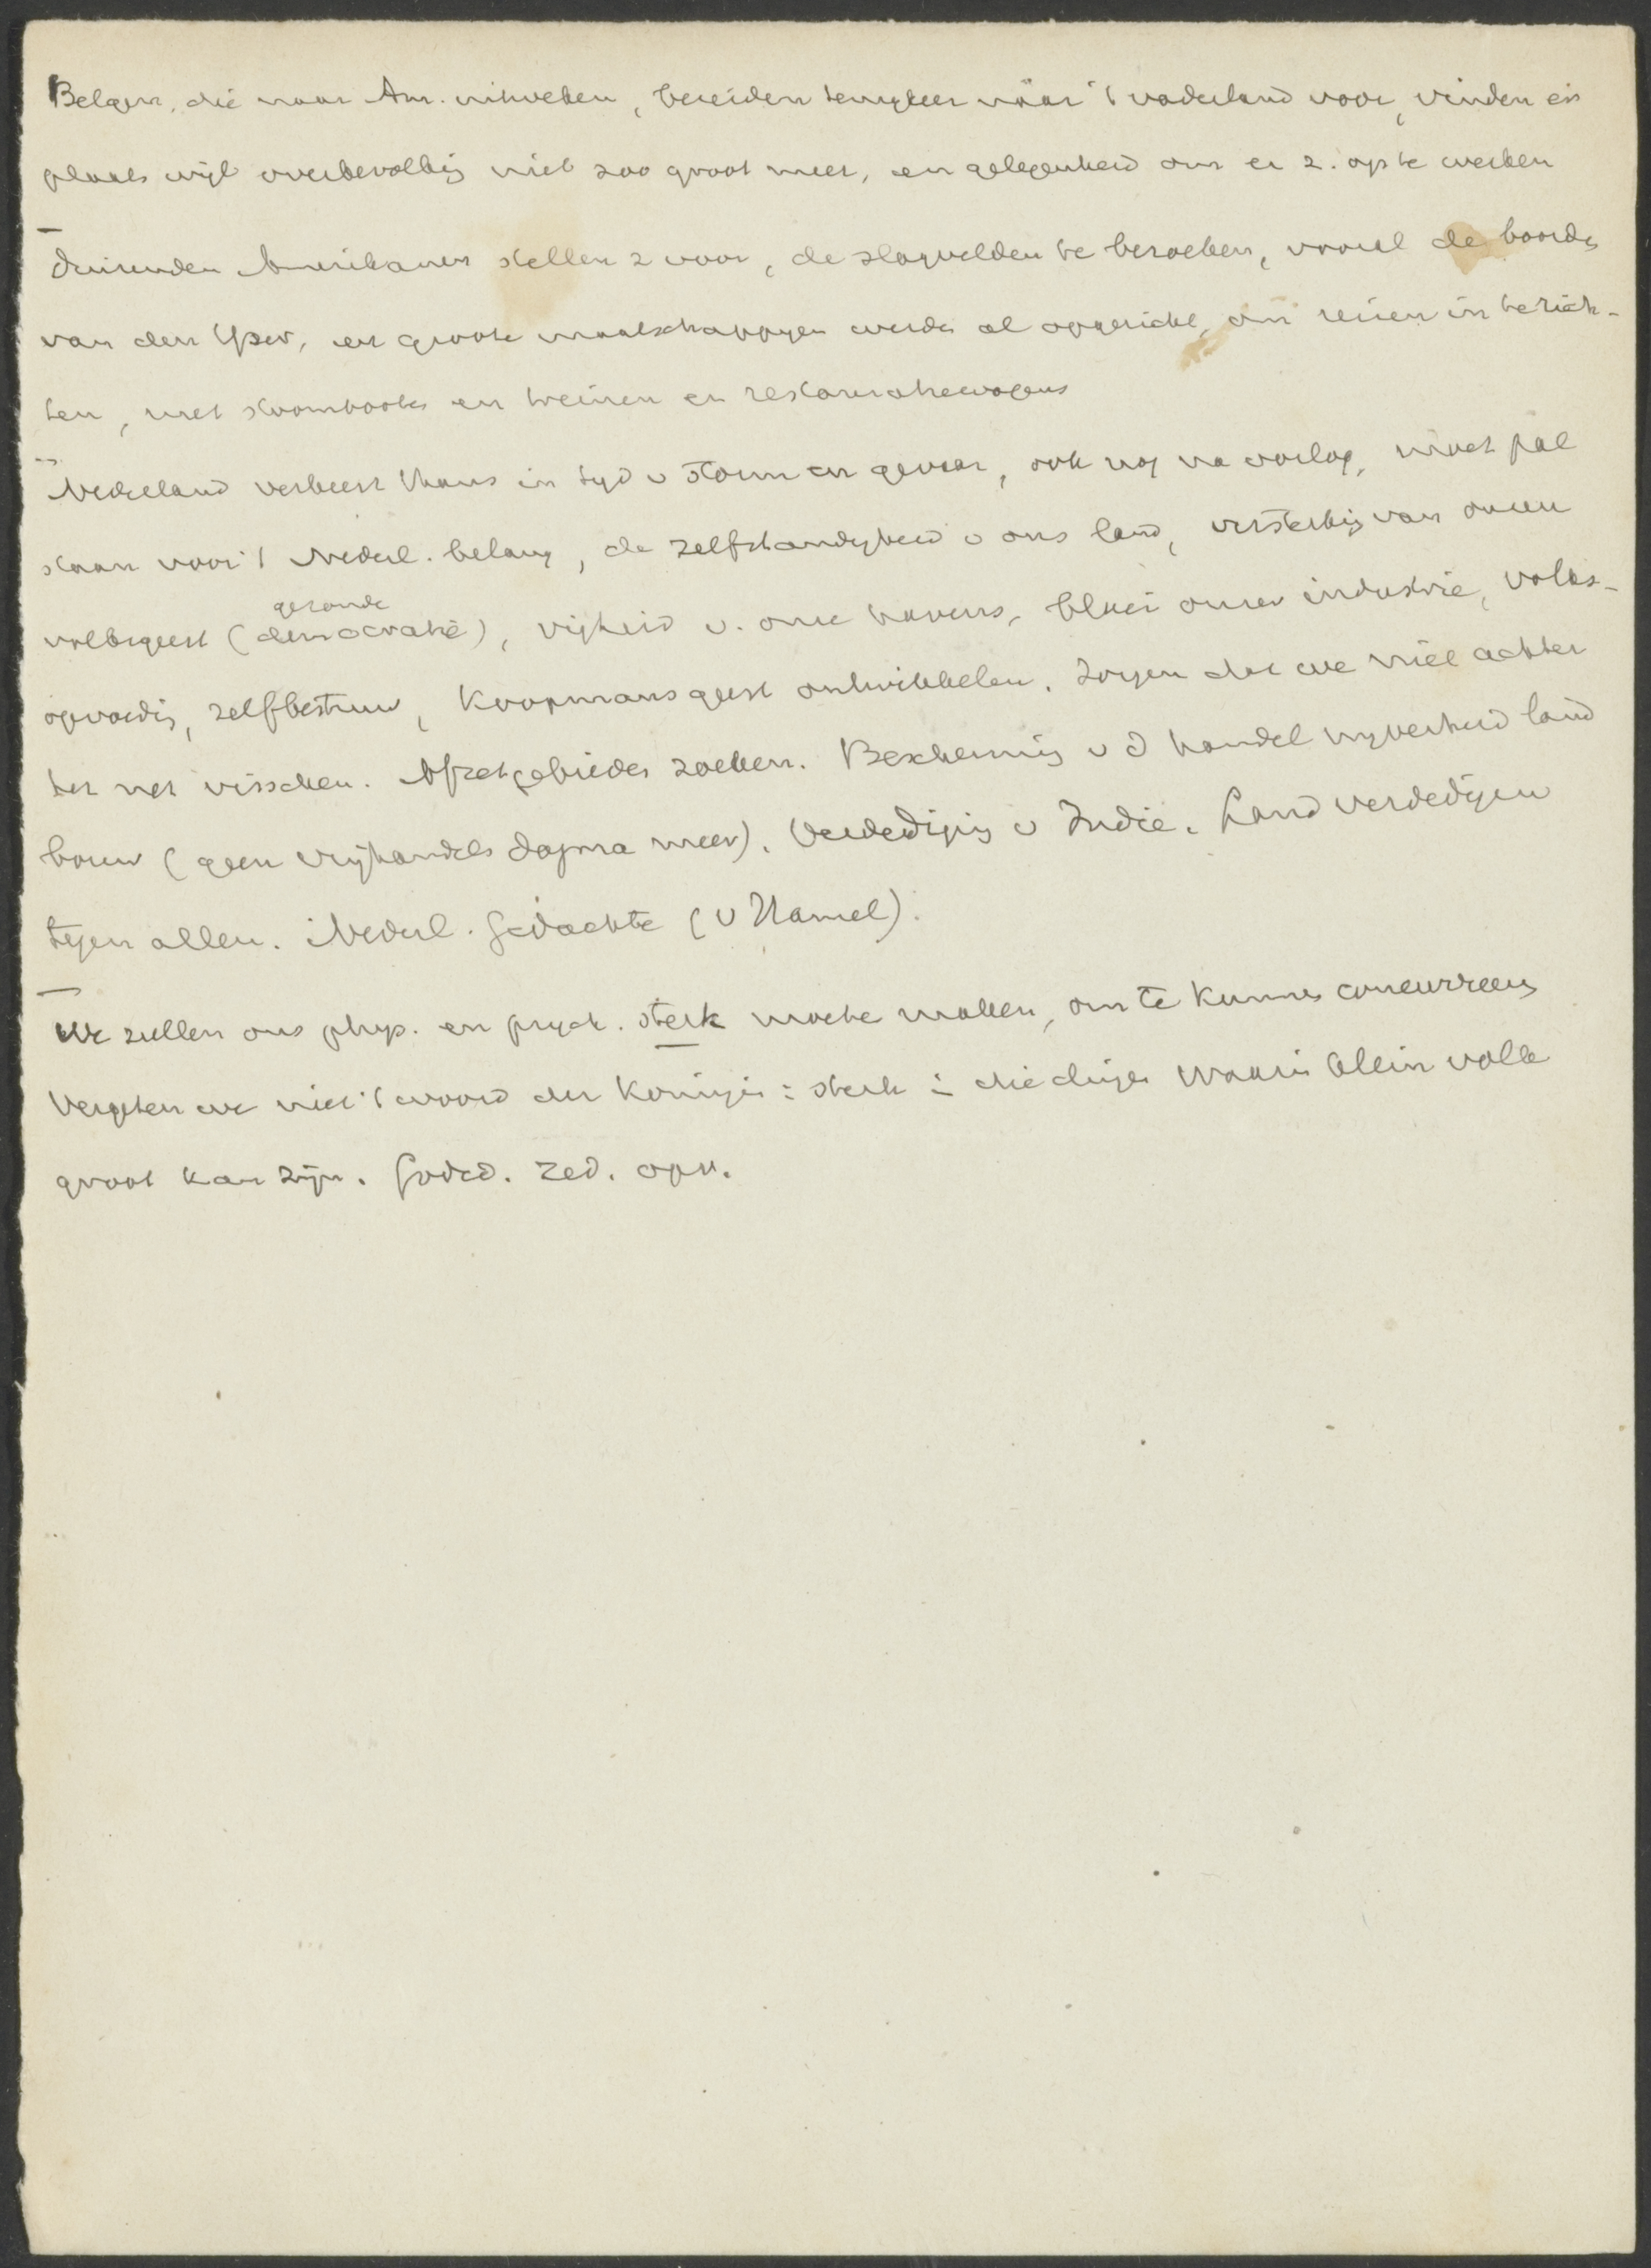 Belgen, die naar Am. uitweken, bereiden terugkeer náár 't vaderland voor, vinden er
plaats wijl overbevolkig niet zoo groot meer, en gelegenheid om er z. op te werken
Duizenden Amerikanen stellen z voor, de slagvelden te bezoeken, vooral de boorde
van den Yser, en groote maatschappyen werde al opgericht, om reizen in te rich-
ten, met stoomboote en treinen en restauratiewagens
Nederland verkeert thans in tyd v storm en gevaar, ook nog na oorlog, moet pal
staan voor 't Nederl. belang, de zelfstandigheid v ons land, versterkig van onzen
gezonde
volksgeest (democratie), vrijheid v. onze havens, bloei onzer industrie, volks-
opvoedig, zelfbestuur, koopmansgeest ontwikkelen. Zorgen dat we niet achter
het net visschen. Afzetgebieden zoeken. Beschermig v d handel nyverheid land
bouw (geen vrijhandels dogma meer). Verdedigig v Indië. Land verdedigen
tegen allen. Nederl. Gedachte (v Hamel).
We zullen ons phys. en psych. sterk moete maken, om te kunne concurreeren
Vergeten we niet 't woord der Koningin: sterk in die dinge waarin klein volk
groot kan zijn. Godsd. Zed. opv.